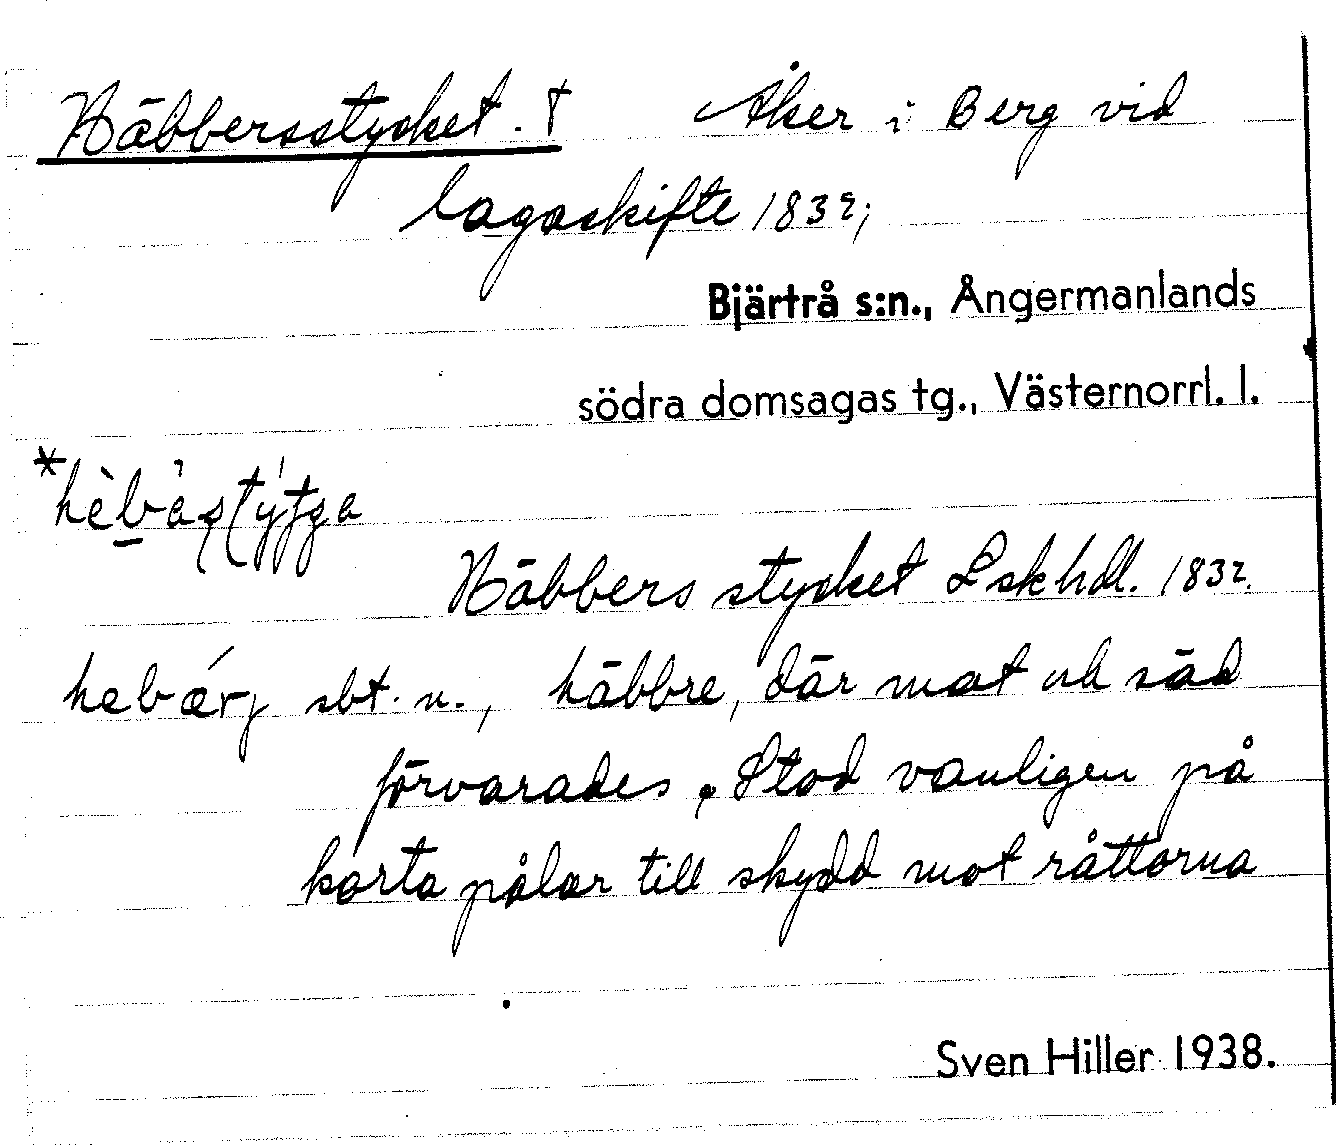 Häbbersstycket. † Åker i Berg vid
lagaskifte 1832;
Bjärtrå s:n., Ångermanlands
södra domsagas tg., Västernorrl. l.
Häbbers stycket Lskhdl. 1832.
sbt. n., häbbre, där mat och säd
förvarades. Stod vanligen på
korta pålar till skydd mot råttorna
Sven Hiller 1938.